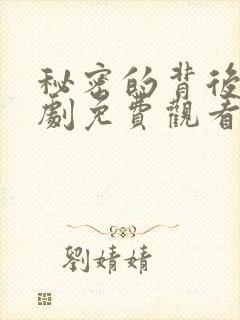 秘密的背後
劇免費觀看
劉婧婧